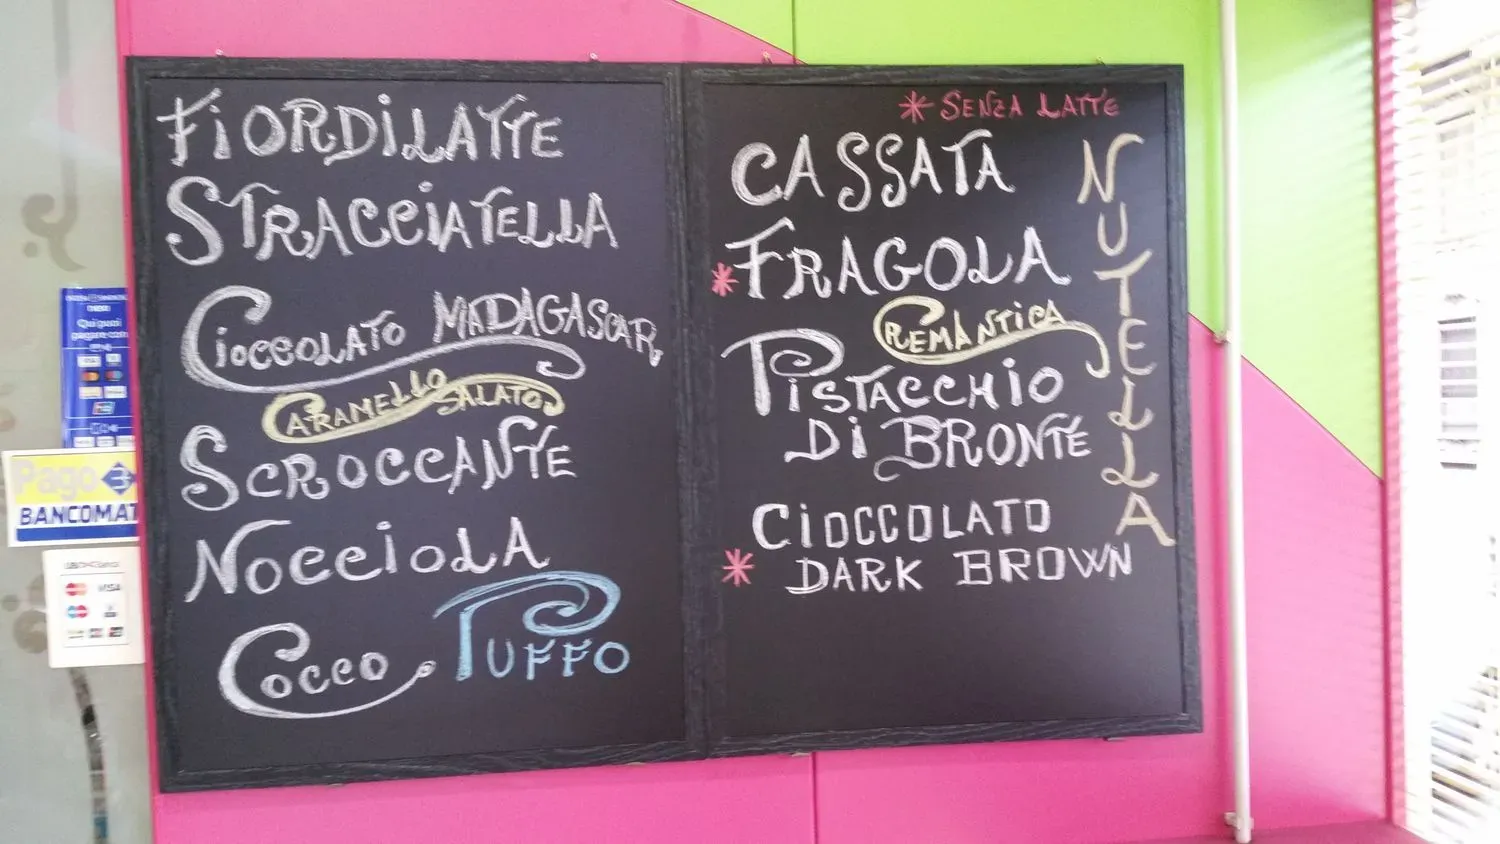 FIORDILATTE
STRACCIATELLA
CIOCCOLATO MADAGASCAR
CARAMELLO SALATO
SCROCCANTE
NOCCIOLA
COCCO
PUFFO
* SENZA LATTE
CASSATA
* FRAGOLA
CREMANTICA
PISTACCHIO
DI BRONTE
CIOCCOLATO
* DARK BROWN
NUTELLA
Qui puoi
pagare con
Pago
BANCOMAT
VISA